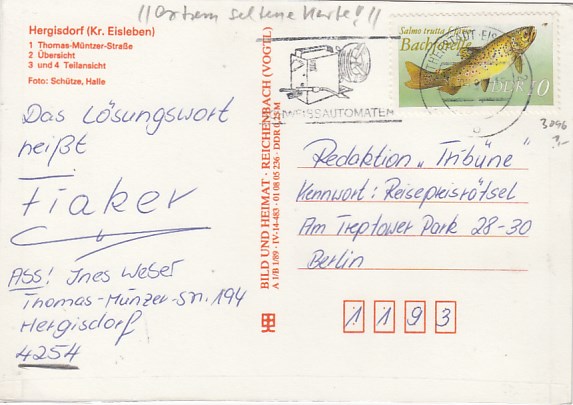 !! extrem seltene Karte! !!
Hergisdorf (Kr. Eisleben)
1 Thomas-Müntzer-Straße
2 Übersicht
3 und 4 Teilansicht
Foto: Schütze, Halle
Das Lösungswort
heißt
Fiaker
Ass! Ines Weber
Thomas-Münzer-Str. 194
Hergisdorf
4254
BILD UND HEIMAT · REICHENBACH (VOGTL)
A 1/B 1/89 · IV-14-483 · 01 08 05 236 · DDR 0,25 M
WEISSAUTOMATEN
Salmo trutta f. fario
Bachforelle
DDR 10
3096
Redaktion „Tribüne"
Kennwort: Reisepreisrätsel
Am Treptower Park 28-30
Berlin
1 1 9 3